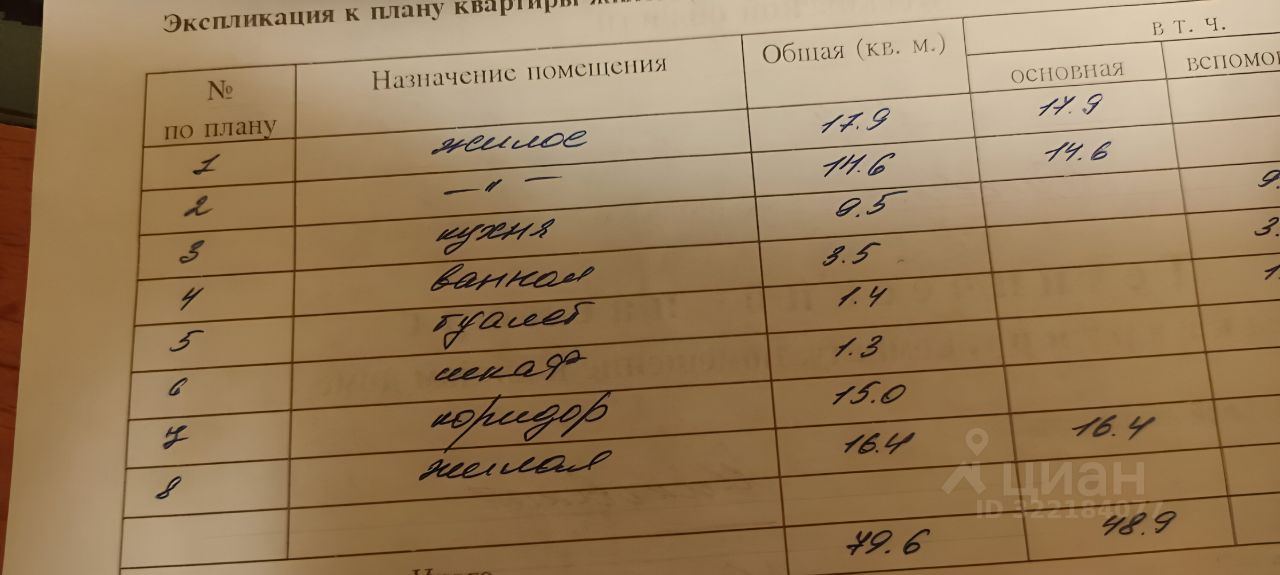 Экспликация к плану квартиры
в т. ч.
№ по плану Назначение помещения Общая (кв. м.) основная вспомог
1 жилое 17.9 17.9
2 —"— 14.6 14.6
3 кухня 9.5 9.
4 ванная 3.5 3.
5 туалет 1.4 1.
6 шкаф 1.3
7 коридор 15.0
8 жилая 16.4 16.4
79.6 48.9
Итого
циан
ID 322184077